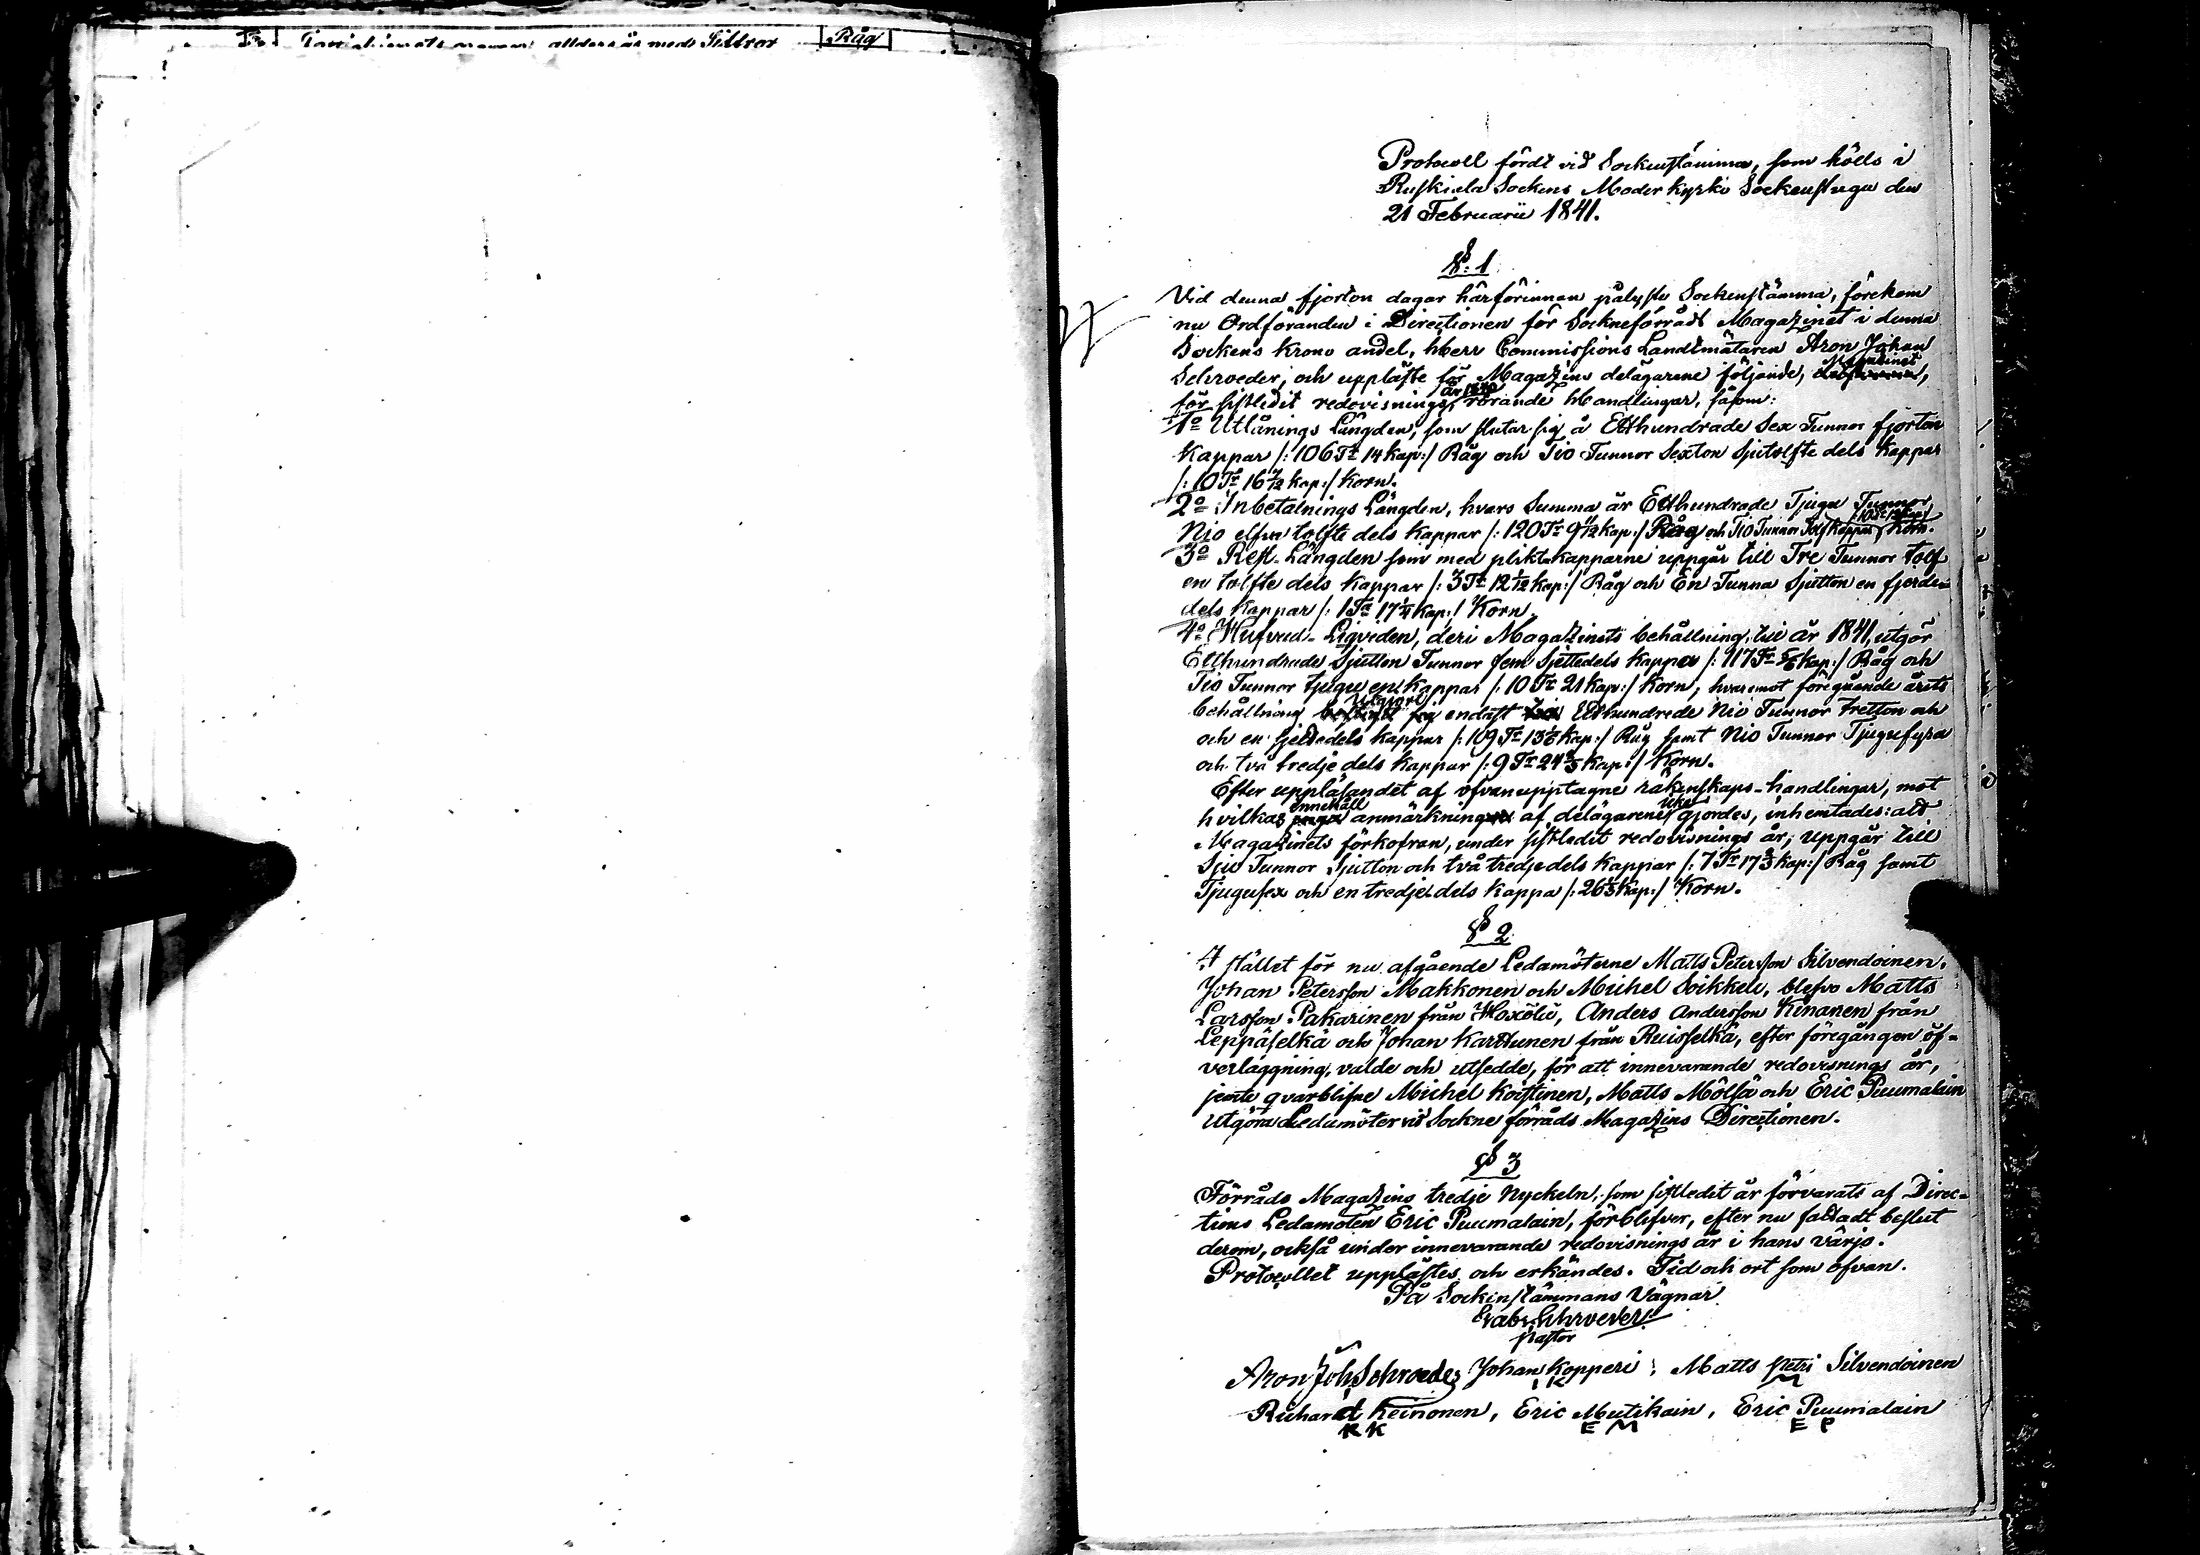 Råg
Protocoll fördt vid Sockenstämma, som hölls i
Ruskiala Sockens Moderkyrko Sockenstugu den
21 Februarii 1841.
§. 1
Vid denna fjorton dagar härförinnan pålyste Sockenstämma, förekom
nu Ordföranden i Directionen för Sockneförråds Magazinet i denna
Sockens Krono andel, Herr Commissions Landtmätaren Aron Johan
Schroeder, och uppläste för Magazins delägarene följande, Magazinet,
för sistledit redovisnings år 1840 rörande Handlingar, såsom:
1o Utlånings Längden, som slutar sig å Etthundrade Sex Tunnor fjorton
Kappar /: 106 Tr 14 kap:/ Råg och Tio Tunnor Sexton sjutolfte dels Kappar
/: 10 Tr 16 7/12 kap:/ Korn.
2o Inbetalnings Längden, hvars Summa är Etthundrade Tjugu Tunnor
Nio elfva tolfte dels Kappar /: 120 Tr 9 11/12 kap:/ Råg och Tio Tunnor Tolf Kappar Korn.
3o Rest-Längden som med pliktkapparne uppgår till Tre Tunnor tolf
en tolfte dels Kappar /: 3 Tr 12 1/12 kap:/ Råg och En Tunna Sjutton en fjerde-
dels Kappar /: 1 Ta 17 1/4 kap:/ Korn.
4o Hufvud-Liqviden, deri Magazinets behållning till år 1841 utgör
Etthundrade Sjutton Tunnor fem Sjettedels Kappa /: 117 Tr 5/6 kap:/ Råg och
Tio Tunnor tjugu en Kappar /: 10 Tr 21 kap:/ Korn, hvaremot föregående årets
behållning utgjort endast Etthundrade Nio Tunnor tretton och
och en sjettedels Kappar /: 109 Tr 13 1/6 kap:/ Råg samt Nio Tunnor Tjugufyra
och två tredje dels Kappar /: 9 Tr 24 2/3 kap:/ Korn.
Efter uppläsandet af ofvanupptagne räkenskaps-handlingar, mot
hvilkas innehåll anmärkning af delägarene icke gjordes, inhemtades: att
Magazinets förkofran, under sistledit redovisnings år, uppgår till
Sju Tunnor Sjutton och två tredjedels Kappar /: 7 Tr 17 2/3 kap:/ Råg samt
Tjugusex och en tredjedels Kappa /: 26 1/3 kap:/ Korn.
§ 2
I stället för nu afgående Ledamöterne Matts Petersson Silvendoinen,
Johan Petersson Makkonen och Michel Soikkeli, blefvo Matts
Larsson Pakarinen från Hoxölö, Anders Andersson Kinanen från
Leppäselkä och Johan Karttunen från Ruisselkä, efter föregången öf-
verläggning, valde och utsedde, för att innevarande redovisnings år,
jemte qvarblifne Michel Koistinen, Matts Mölsä och Eric Puumalain
utgöra Ledamöter vid Sockne förråds Magazins Directionen.
§ 3
Förråds Magazins tredje Nyckeln, som sistledit år förvarats af Direc-
tions Ledamoten Eric Puumalain, förblifver, efter nu fattadt beslut
derom, också under innevarande redovisnings år i hans värjo.
Protocollet upplästes och erkändes. Tid och ort som ofvan.
På Sockenstämmans Vägnar
Gab. Schroeder
Pastor
Aron Joh. Schroeder Johan Kopperi, Matts Petri Silvendoinen
Richard Keinonen, Eric Mutikain, Eric Puumalain
R K E M E P